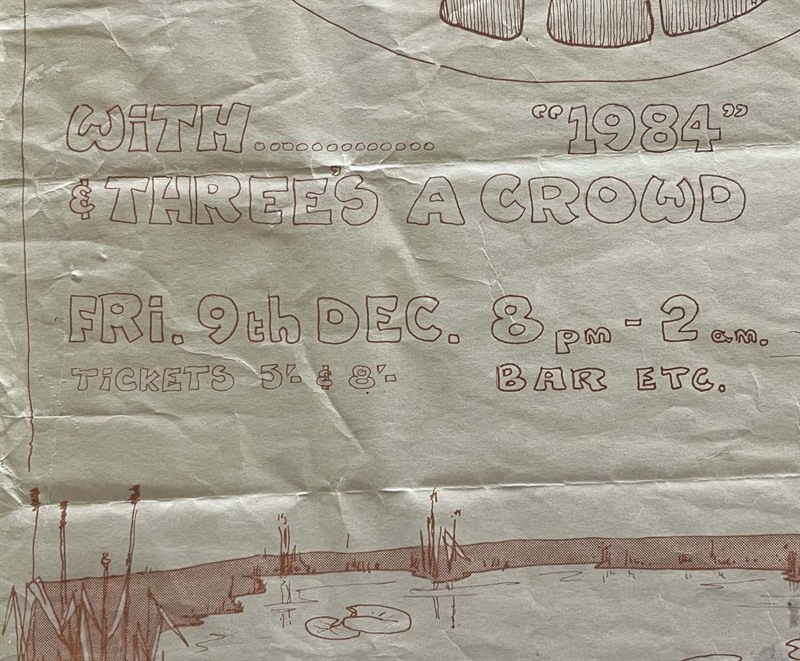 WiTH............. "1984"
& THREE'S A CROWD
FRi. 9th DEC. 8 pm - 2 am.
TiCKETS 5'- & 8'- BAR ETC.